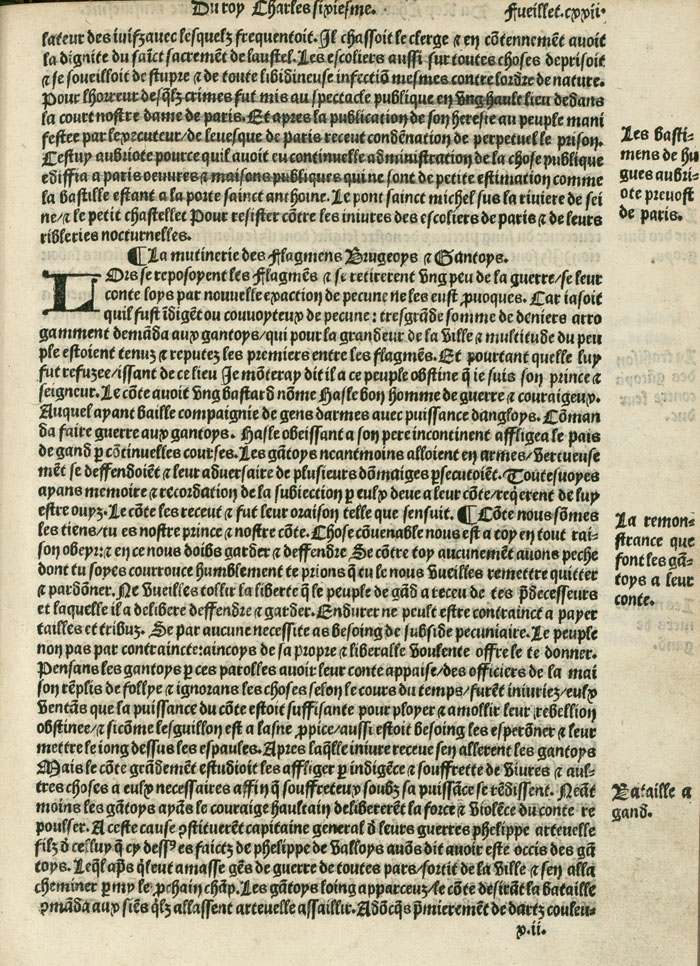 Du roy Charles sixiesme.
Fueillet.cxxii.
lateur des iuifz auec lesquelz frequentoit. Il chassoit le clerge ⁊ en cõtennemẽt auoit
la dignite du saīct sacremẽt de laustel. Les escoliers aussi sur toutes choses deprisoit
⁊ se soueilloit de stupre ⁊ de toute libidineuse infectiõ mesmes contre lordre de nature.
Pour lhorreur desq̃lz crimes fut mis au spectacle publique en vng hault lieu dedans
la court nostre dame de paris. Et apres la publication de son heresie au peuple mani
festee par lexecuteur/de leuesque de paris receut condẽnation de perpetuelle prison.
Cestuy aubriote pource quil auoit eu continuelle administration de la chose publique
ediffia a paris oeuures ⁊ maisons publiques qui ne sont de petite estimation comme
la bastille estant a la porte sainct anthoine. Le pont sainct michel sus la riuiere de sei
ne/⁊ le petit chastellet Pour resister cõtre les iniures des escoliers de paris ⁊ de leurs
ribleries nocturnelles.
Les basti-
mens de hu
gues aubri-
ote preuost
de paris.
¶La mutinerie des Flagmens Brugeoys ⁊ Gantoys.
LOrs se reposoyent les Flagmẽs ⁊ se retirerent vng peu de la guerre/se leur
conte loys par nouuelle exaction de pecune ne les eust ꝓuoques. Car iasoit
quil fust ĩdigẽt ou couuoyteux de pecune: tresgrãde somme de deniers arro
gamment demãda aux gantoys/qui pour la grandeur de la ville ⁊ multitude du peu
ple estoient tenuz ⁊ reputez les premiers entre les flagmẽs. Et pourtant quelle luy
fut refuzee/issant de ce lieu Ie mõteray dit il a ce peuple obstine q̃ ie suis son prince ⁊
seigneur. Le cõte auoit vng bastard nõme Hasle bon homme de guerre ⁊ couraigeux.
Auquel ayant baille compaignie de gens darmes auec puissance dangloys. Cõman
da faire guerre aux gantoys. Hasle obeissant a son pere incontinent affligea le pais
de gand ꝑ cõtinuelles courses. Les gãtoys neantmoins alloient en armes/vertueuse
mẽt se deffendoiẽt ⁊ leur aduersaire de plusieurs dõmaiges ꝑsecutoiẽt. Toutesuoyes
ayans memoire ⁊ recordation de la subiection ꝑ eulx deue a leur cõte/reqerent de luy
estre ouyz. Le cõte les receut ⁊ fut leur oraison telle que sensuit. ¶Cõte nous sõmes
les tiens/tu es nostre prince ⁊ nostre cõte. Chose cõuenable nous est a toy en tout rai-
son obeyr:⁊ en ce nous doibs garder ⁊ deffendre Se cõtre toy aucunemẽt auons peche
dont tu soyes courrouce humblement te prions q̃ tu le nous vueilles remettre quitter
⁊ pardõner. Ne vueilles tollir la liberte q̃ le peuple de gãd a receu de tes p̃decesseurs
et laquelle il a delibere deffendre ⁊ garder. Endurer ne peult estre contrainct a payer
tailles et tribuz. Se par aucune necessite as besoing de subside pecuniaire. Le peuple
non pas par contraincte:aincoys de sa propre ⁊ liberalle voulente offre le te donner.
La remon-
strance que
font les gã-
toys a leur
conte.
Pensans les gantoys ꝑ ces parolles auoir leur conte appaise/des officiers de la mai
son rẽplis de follye ⁊ ignorans les choses selon le cours du temps/furẽt iniuriez/eulx
ventãs que la puissance du cõte estoit suffisante pour ployer ⁊ amollir leur rebellion
obstinee/⁊ sicõme lesguillon est a lasne ꝓpice/aussi estoit besoing les esperõner ⁊ leur
mettre le iong dessus les espaules. Apres laq̃lle iniure receue sen allerent les gantoys
Mais le cõte grãdemẽt estudioit les affliger ꝑ indigẽce ⁊ souffrette de viures ⁊ aul-
tres choses a eulx necessaires affin q̃ souffreteux soubz sa puissãce se rẽdissent. Neãt
moins les gãtoys ayãs le couraige haultain delibererẽt la force ⁊ violẽce du conte re
poulser. A ceste cause ꝯstituerẽt capitaine general d̃ leurs guerres phelippe arteuelle
filz d̃ celluy q̃ cy dessꝰ es faictz de phelippe de valloys auõs dit auoir este occis des gã
toys. Leq̃l ap̃s q̃l eut amasse gẽs de guerre de toutes pars/sortit de la ville ⁊ sen alla
cheminer ꝑmy le ꝓchain chãp. Les gãtoys loing apparceuz/le cõte desirãt la bataille
ꝯmãda aux siẽs q̃lz allassent arteuelle assaillir. Adõcq̃s p̃mierement de dartz couleu-
Bataille a
gand.
x.ii.